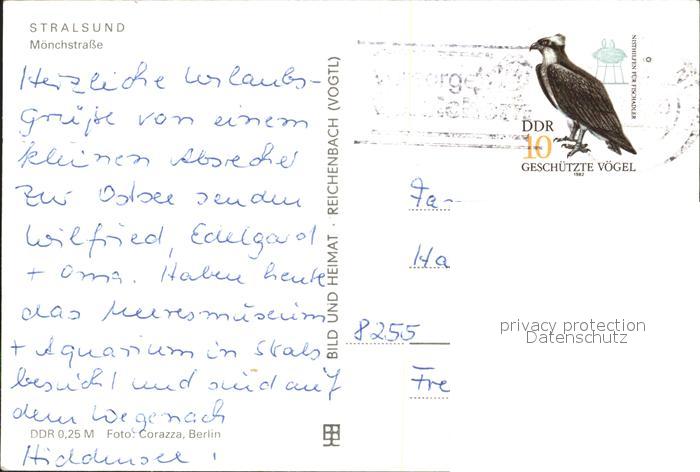 STRALSUND
Mönchstraße
Herzliche Urlaubs-
Grüße von einem
kleinen Abstecher
zur Ostsee senden
Wilfried, Edelgard
+ Oma. Haben heute
das Meeresmuseum
+ Aquarium in Strals.
besucht und sind auf
dem Wege nach
Hiddensee!
DDR 0,25 M Foto: Corazza, Berlin
BILD UND HEIMAT · REICHENBACH (VOGTL)
DDR
10
GESCHÜTZTE VÖGEL
1982
NISTHILFEN FÜR FISCHADLER
Fa-
Ha
8255
Fre
privacy protection
Datenschutz